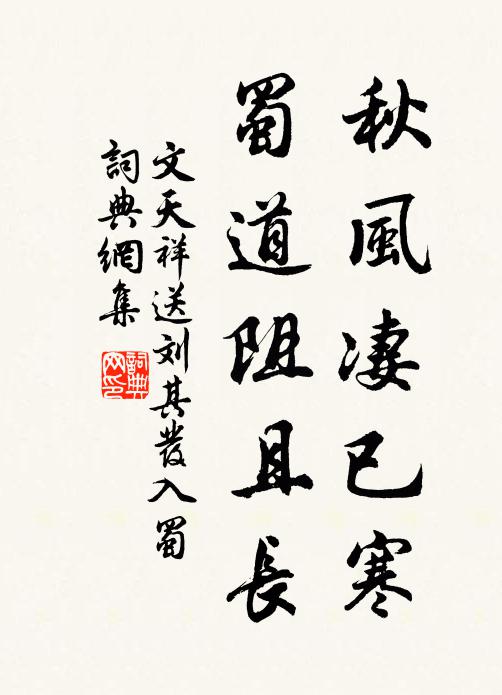 秋風凄已寒
蜀道阻且長
文天祥送刘其發入蜀
詞典網集
詞典网印